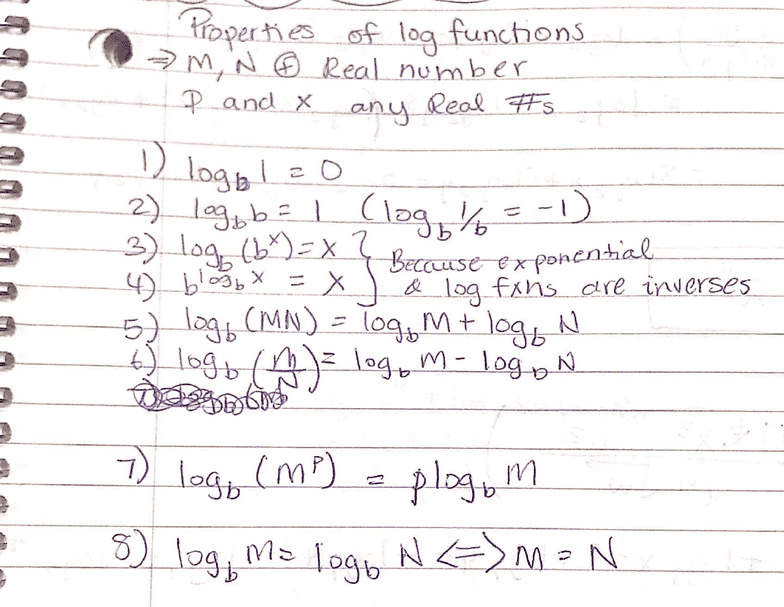 Properties of log functions
⇒ M, N ⊕ Real number
P and x any Real #s
1) log_b 1 = 0
2) log_b b = 1 (log_b 1/b = -1)
3) log_b (b^x) = x } Because exponential
4) b^(log_b x) = x } & log fxns are inverses
5) log_b (MN) = log_b M + log_b N
6) log_b (M/N) = log_b M - log_b N
7) log_b (M^p) = p log_b M
8) log_b M = log_b N <=> M = N